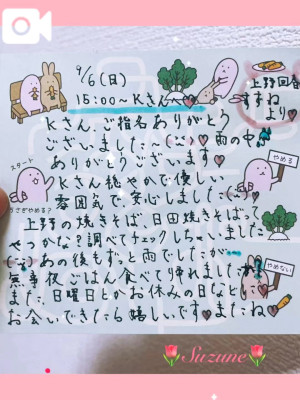 9/6(日)
15:00~Kさんへ♥
上野回春
すずね
より♥
Kさん、ご指名ありがとう
ございました~(^^)♥雨の中
ありがとうございます♥
スタート
やめる
うさぎやめる?
Kさん穏やかで優しい
雰囲気で、安心しました(^^)♥
上野の焼きそば、日田焼きそばって
やつかな?調べてチェックしちゃいました
(^^)あの後もずっと雨でしたが
無事夜ごはん食べて帰れましたか
やめない
また、日曜日とかお休みの日など
お会いできたら嬉しいです♥またね♥
🌷Suzune🌷